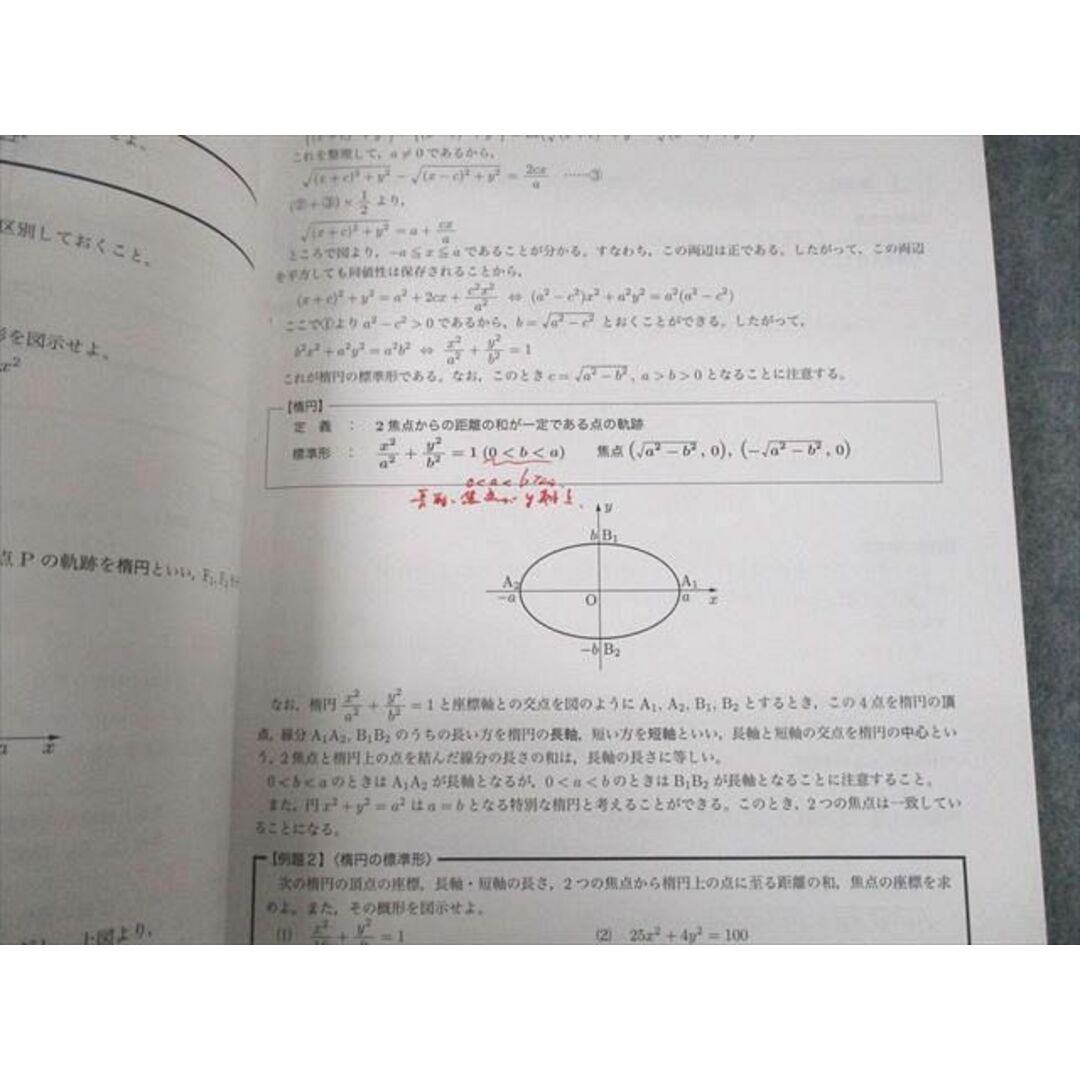 区別しておくこと。
を図示せよ。
x²
点 P の軌跡を楕円といい,
a x
上図より,
これを整理して, a≠0 であるから,
√((x+c)²+y²) − √((x−c)²+y²) = 2cx/a ……③
(②+③)×1/2 より,
√((x+c)²+y²) = a + cx/a
ところで図より, −a≦x≦a であることが分かる。すなわち, この両辺は正である。したがって, この両辺
を平方しても同値性は保存されることから,
(x+c)²+y² = a²+2cx+ c²x²/a² ⇔ (a²−c²)x²+a²y² = a²(a²−c²)
ここで①より a²−c²>0 であるから, b=√(a²−c²) とおくことができる。したがって,
b²x²+a²y² = a²b² ⇔ x²/a² + y²/b² = 1
これが楕円の標準形である。なお, このとき c=√(a²−b²), a>b>0 となることに注意する。
【楕円】
定 義 : 2焦点からの距離の和が一定である点の軌跡
標準形 : x²/a² + y²/b² = 1 (0<b<a) 焦点 (√(a²−b²), 0), (−√(a²−b²), 0)
0<a<b
y
b B₁
A₂ A₁
−a O a x
−b B₂
なお, 楕円 x²/a² + y²/b² = 1 と座標軸との交点を図のように A₁, A₂, B₁, B₂ とするとき, この4点を楕円の頂
点, 線分 A₁A₂, B₁B₂ のうちの長い方を楕円の長軸, 短い方を短軸といい, 長軸と短軸の交点を楕円の中心とい
う。2焦点と楕円上の点を結んだ線分の長さの和は, 長軸の長さに等しい。
0<b<a のときは A₁A₂ が長軸となるが, 0<a<b のときは B₁B₂ が長軸となることに注意すること。
また, 円 x²+y²=a² は a=b となる特別な楕円と考えることができる。このとき, 2つの焦点は一致してい
ることになる。
【例題2】〈楕円の標準形〉
次の楕円の頂点の座標, 長軸・短軸の長さ, 2つの焦点から楕円上の点に至る距離の和, 焦点の座標を求
めよ。また, その概形を図示せよ。
(1) = 1 (2) 25x²+4y²=100